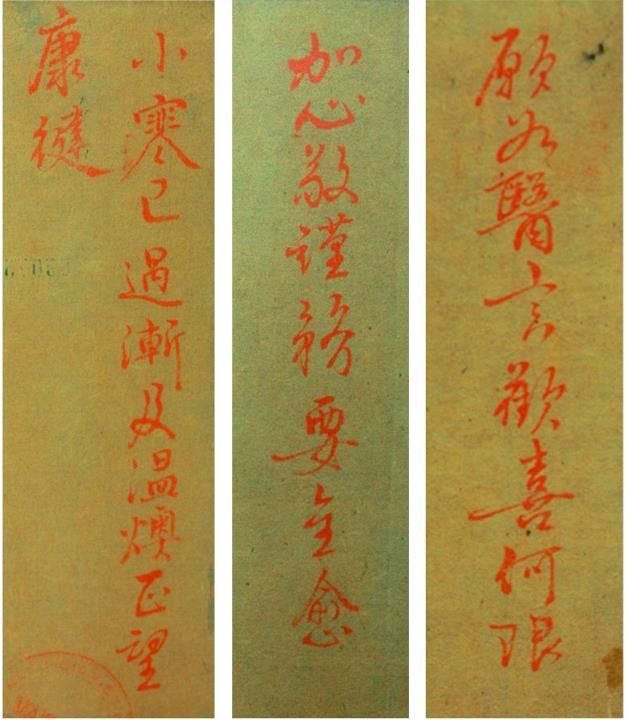 願如醫言歡喜何限
加心敬謹務要全愈
小寒已過漸及温燠正望
康徤